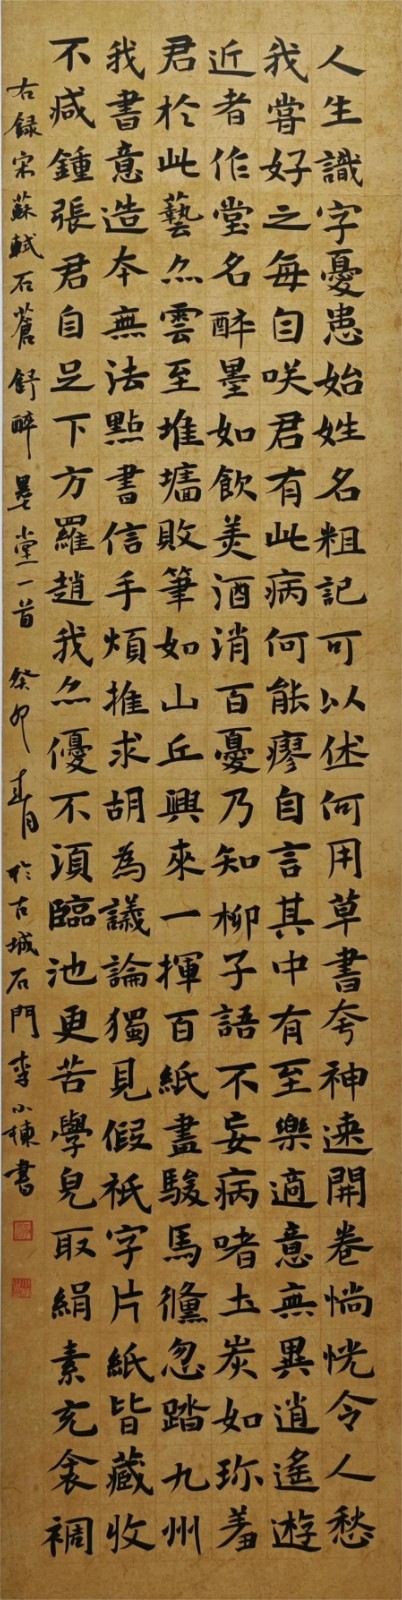 人生識字憂患始姓名粗記可以休何用草書夸神速開卷惝怳令人愁
我嘗好之每自咲君有此病何能瘳自言其中有至樂適意無異逍遙遊
近者作堂名醉墨如飲美酒消百憂乃知柳子語不妄病嗜土炭如珎羞
君於此藝亦雲至堆墻敗筆如山丘興來一揮百紙盡駿馬儵忽踏九州
我書意造本無法點書信手煩推求胡為議論獨見假祇字片紙皆藏收
不減鍾張君自足下方羅趙我亦優不須臨池更苦學皃取絹素充衾裯
右録宋蘇軾石蒼舒醉墨堂一首 癸卯春月於古城石門李小棟書